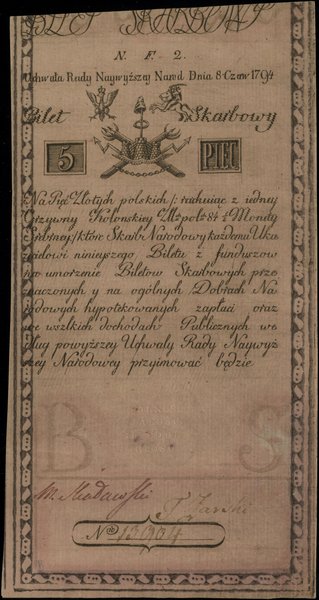 BILET SKARBOWY
N. F. 2.
Uchwała Rady Naywyższey Narod Dnia 8 Czerw 1794
Bilet Skarbowy
5 PIĘĆ
Na Pięć Złotych polskich /: rachuiąc z iedney
Grzywny Kolonskiey Złł pols: 84 ½ Monety
Srebrney/ które Skarb Narodowy każdemu Oka
zicielowi ninieyszego Biletu z funduszow
na umorzenie Biletow Skarbowych prze
znaczonych y na ogolnych Dobrach Na
rodowych hypotekowanych zapłaci oraz
we wszelkich dochodach Publicznych we
dług powyższey Uchwały Rady Naywyż
szey Narodowey przyimować będzie
B S
M. Skodowski
F. Jarski
No 13904